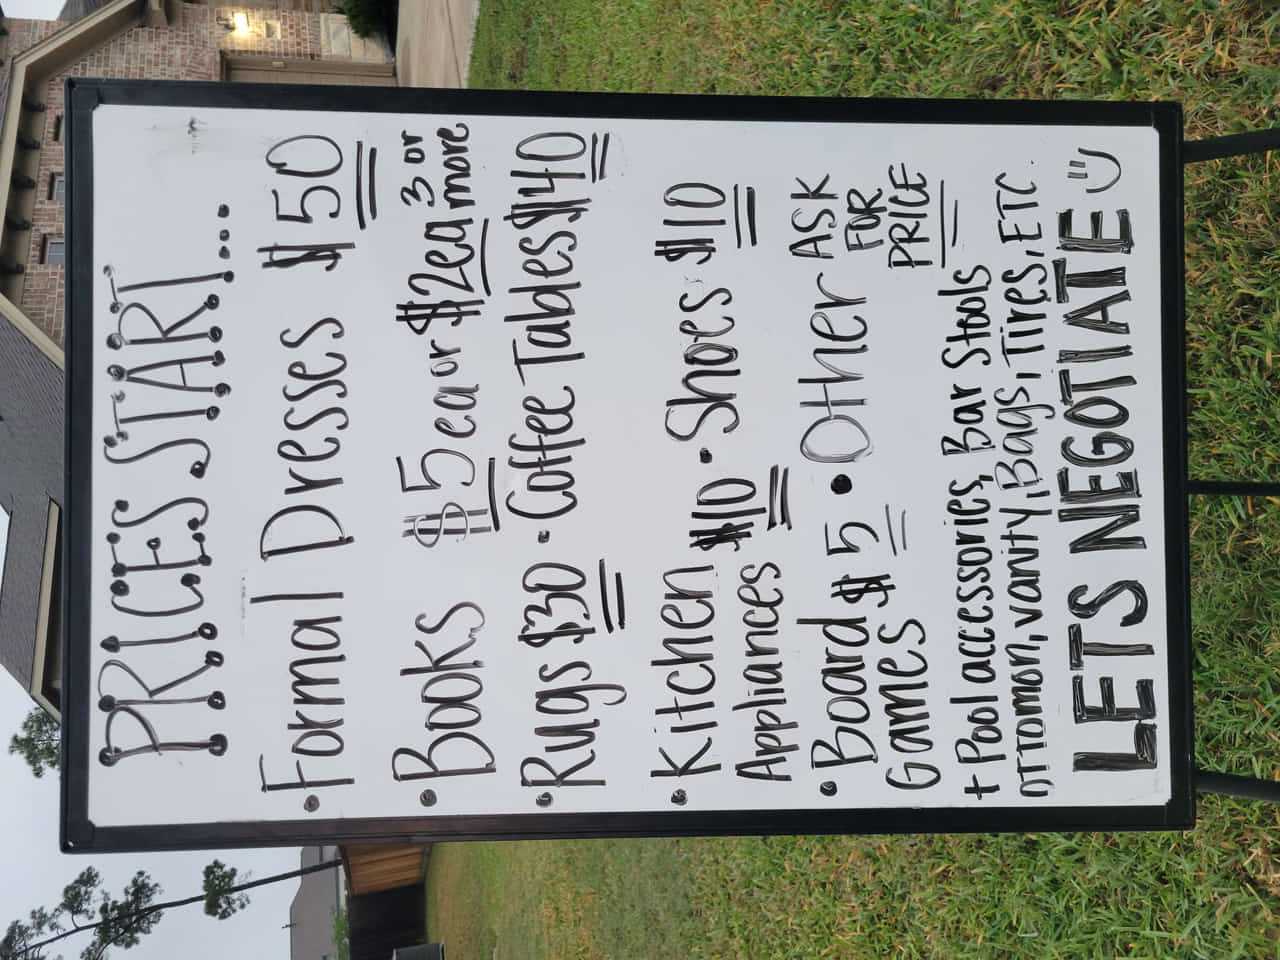 PRICES START...
• Formal Dresses $50
• Books $5ea or $2ea 3 or more
• Rugs $30 • Coffee Tables $40
• Kitchen Appliances $10 • Shoes $10
• Board Games $5 • Other ASK FOR PRICE
+ Pool accessories, Bar Stools
OTTOMON, vanity, Bags, Tires, ETC.
LETS NEGOTIATE :)